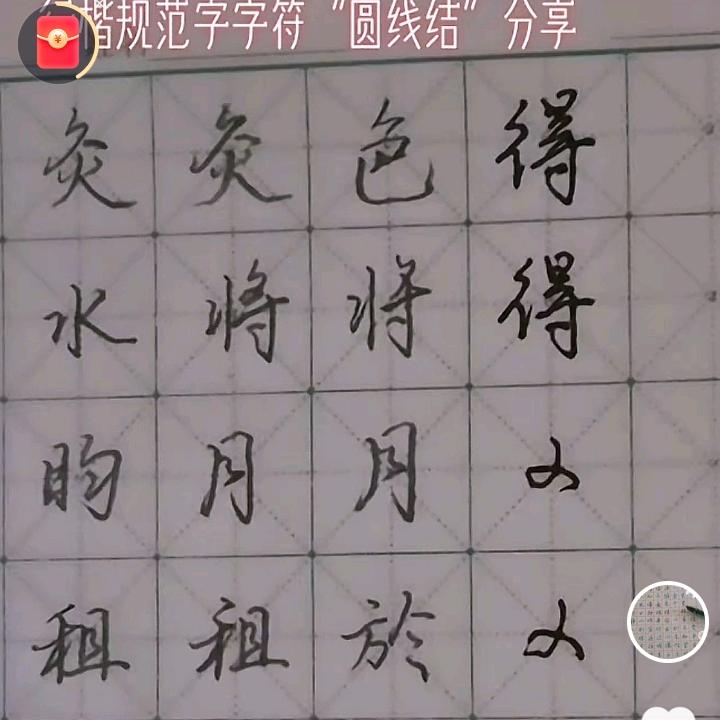 楷规范字字符“圆线结”分享
灸 灸 色 得
水 将 将 得
昀 月 月
租 租 於